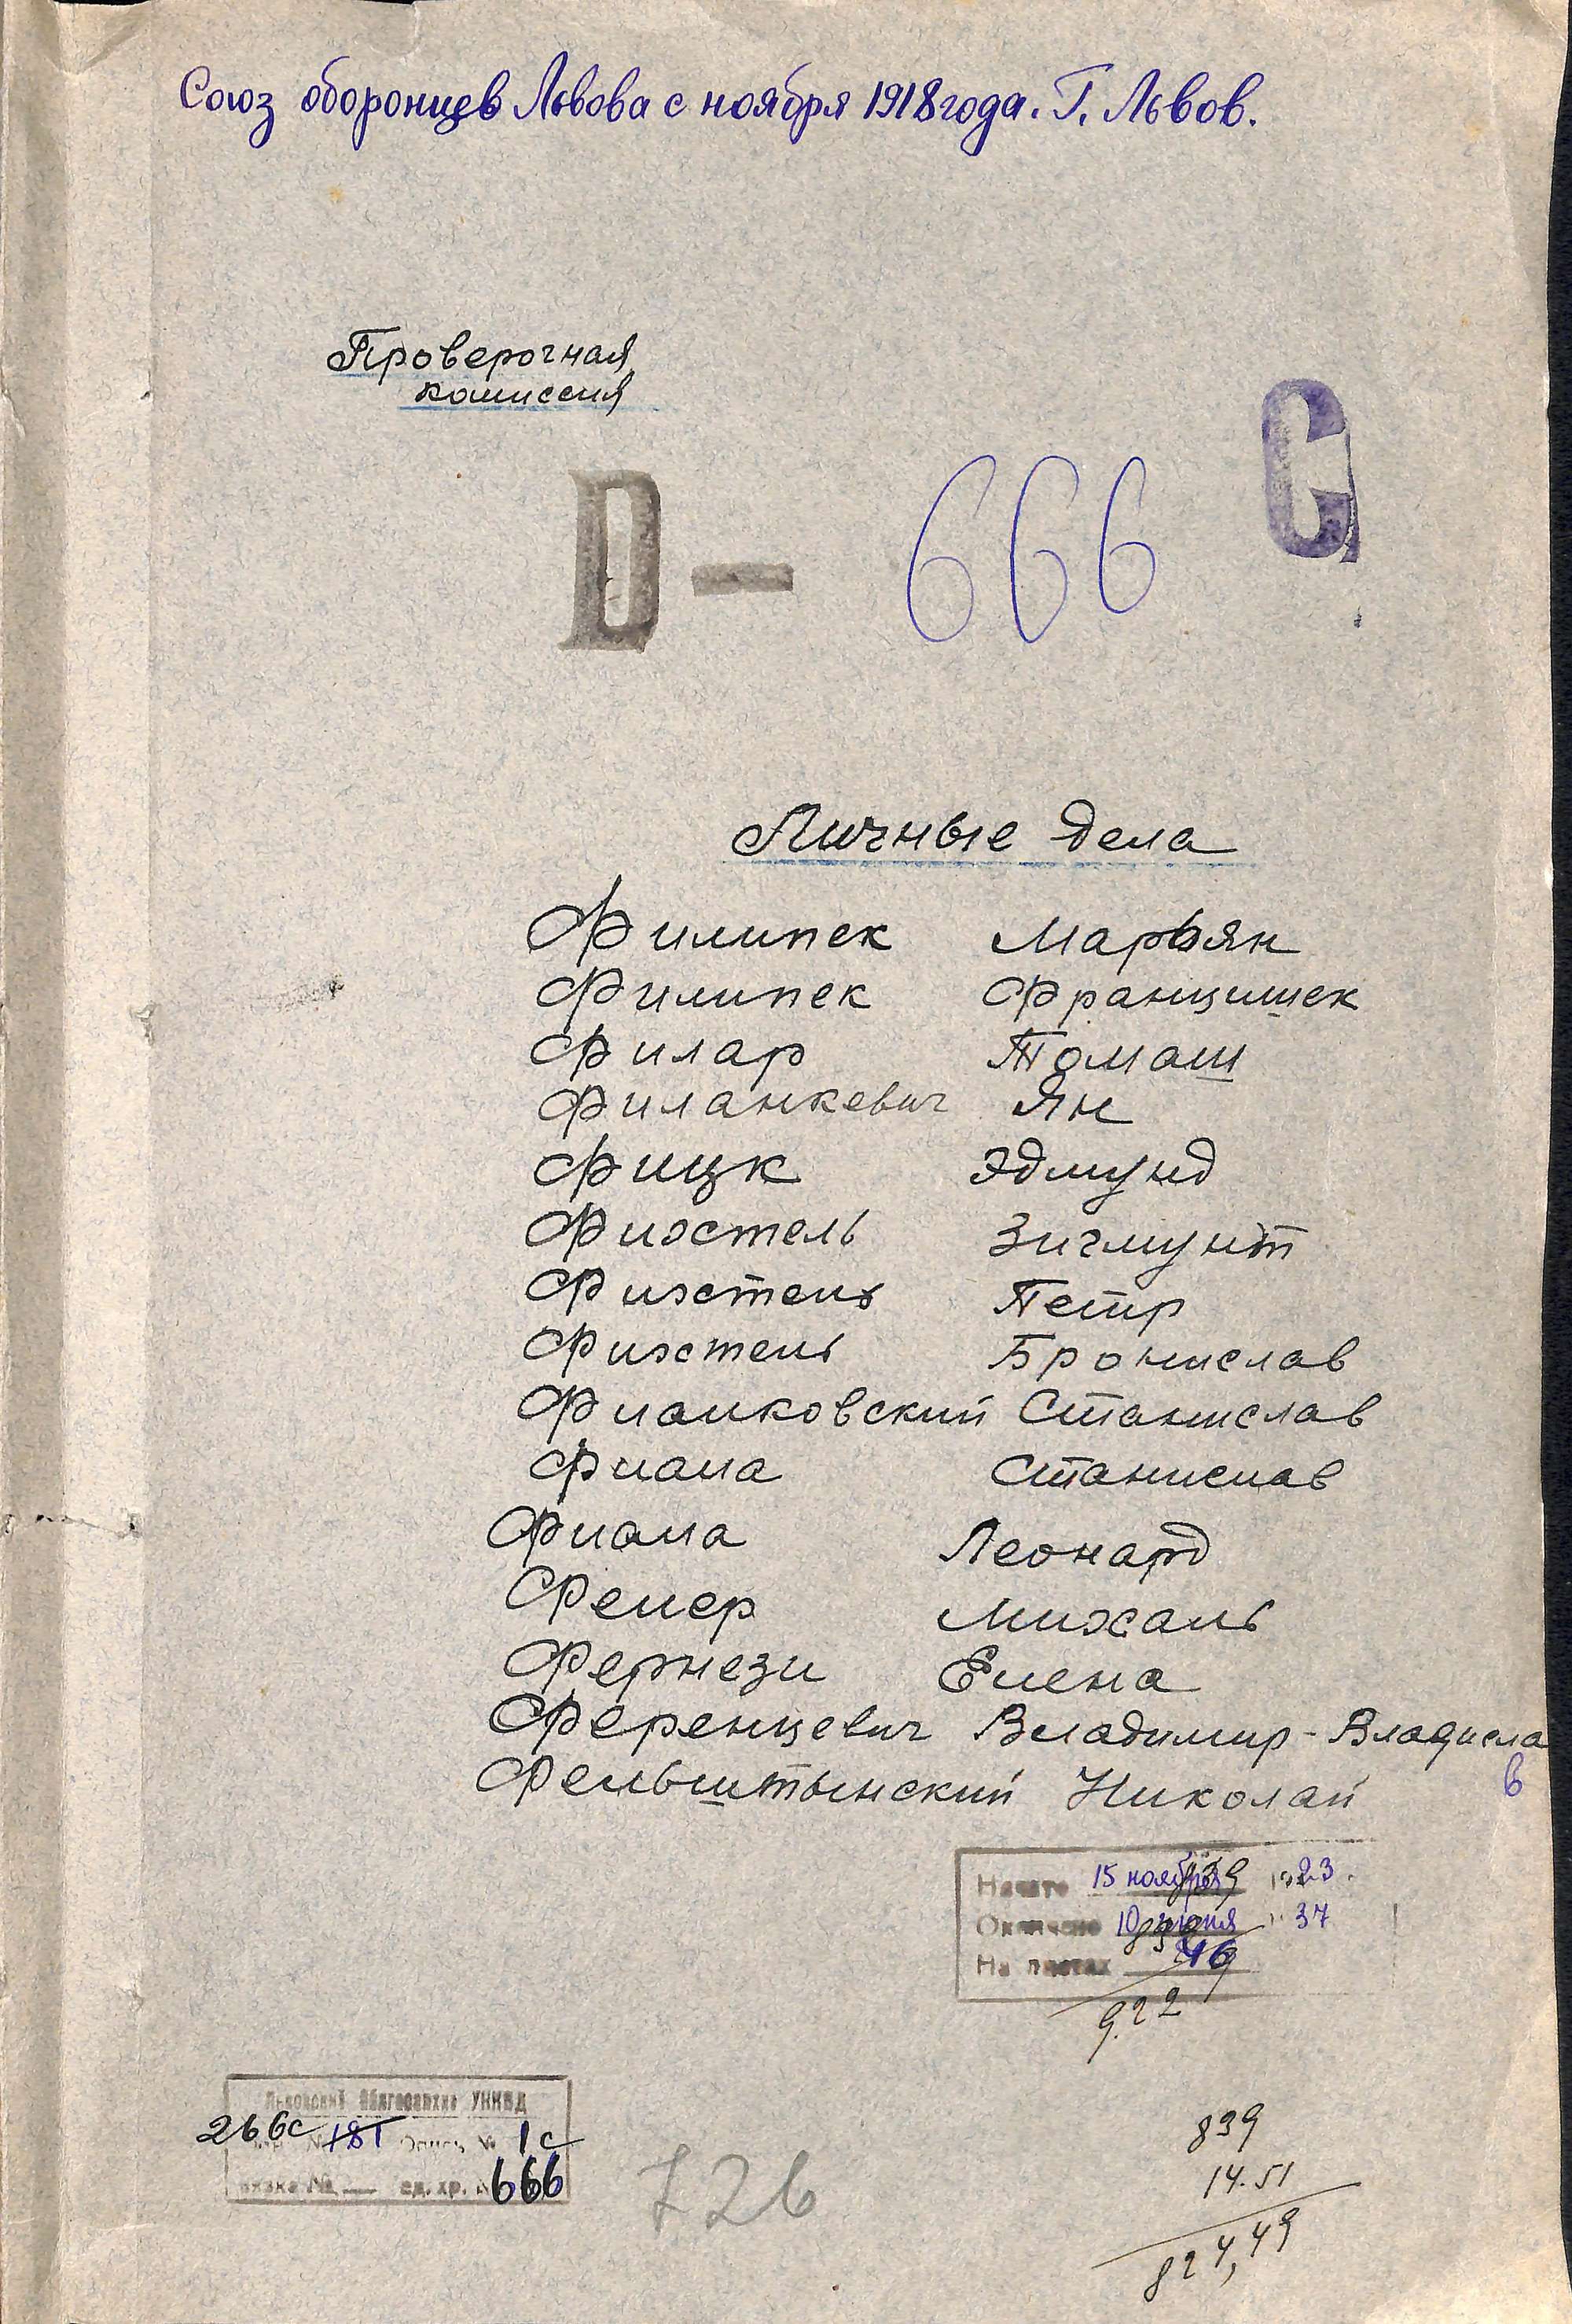 Союз оборонцев Львова с ноября 1918 года. Г. Львов.
Проверочная
комиссия
С
D — 666
Личные дела
Филипек Марьян
Филипек Францишек
Филар Томаш
Филанкевич Ян
Фицк Эдмунд
Фихтель Зигмунт
Фихтель Петр
Фихтель Бронислав
Фиалковский Станислав
Фиала Станислав
Фиала Леонард
Фелер Михаль
Фернези Елена
Ференцевич Владимир-Владисла
в
Фельштынский Николай
Начато 15 ноября 1923.
Окончено 10 июня 37
На листах
922
Львовский Облгосархив УНКВД
266с 181 Опись № 1с
вязка № — ед. хр. № 666
726
839
14.51
824,49